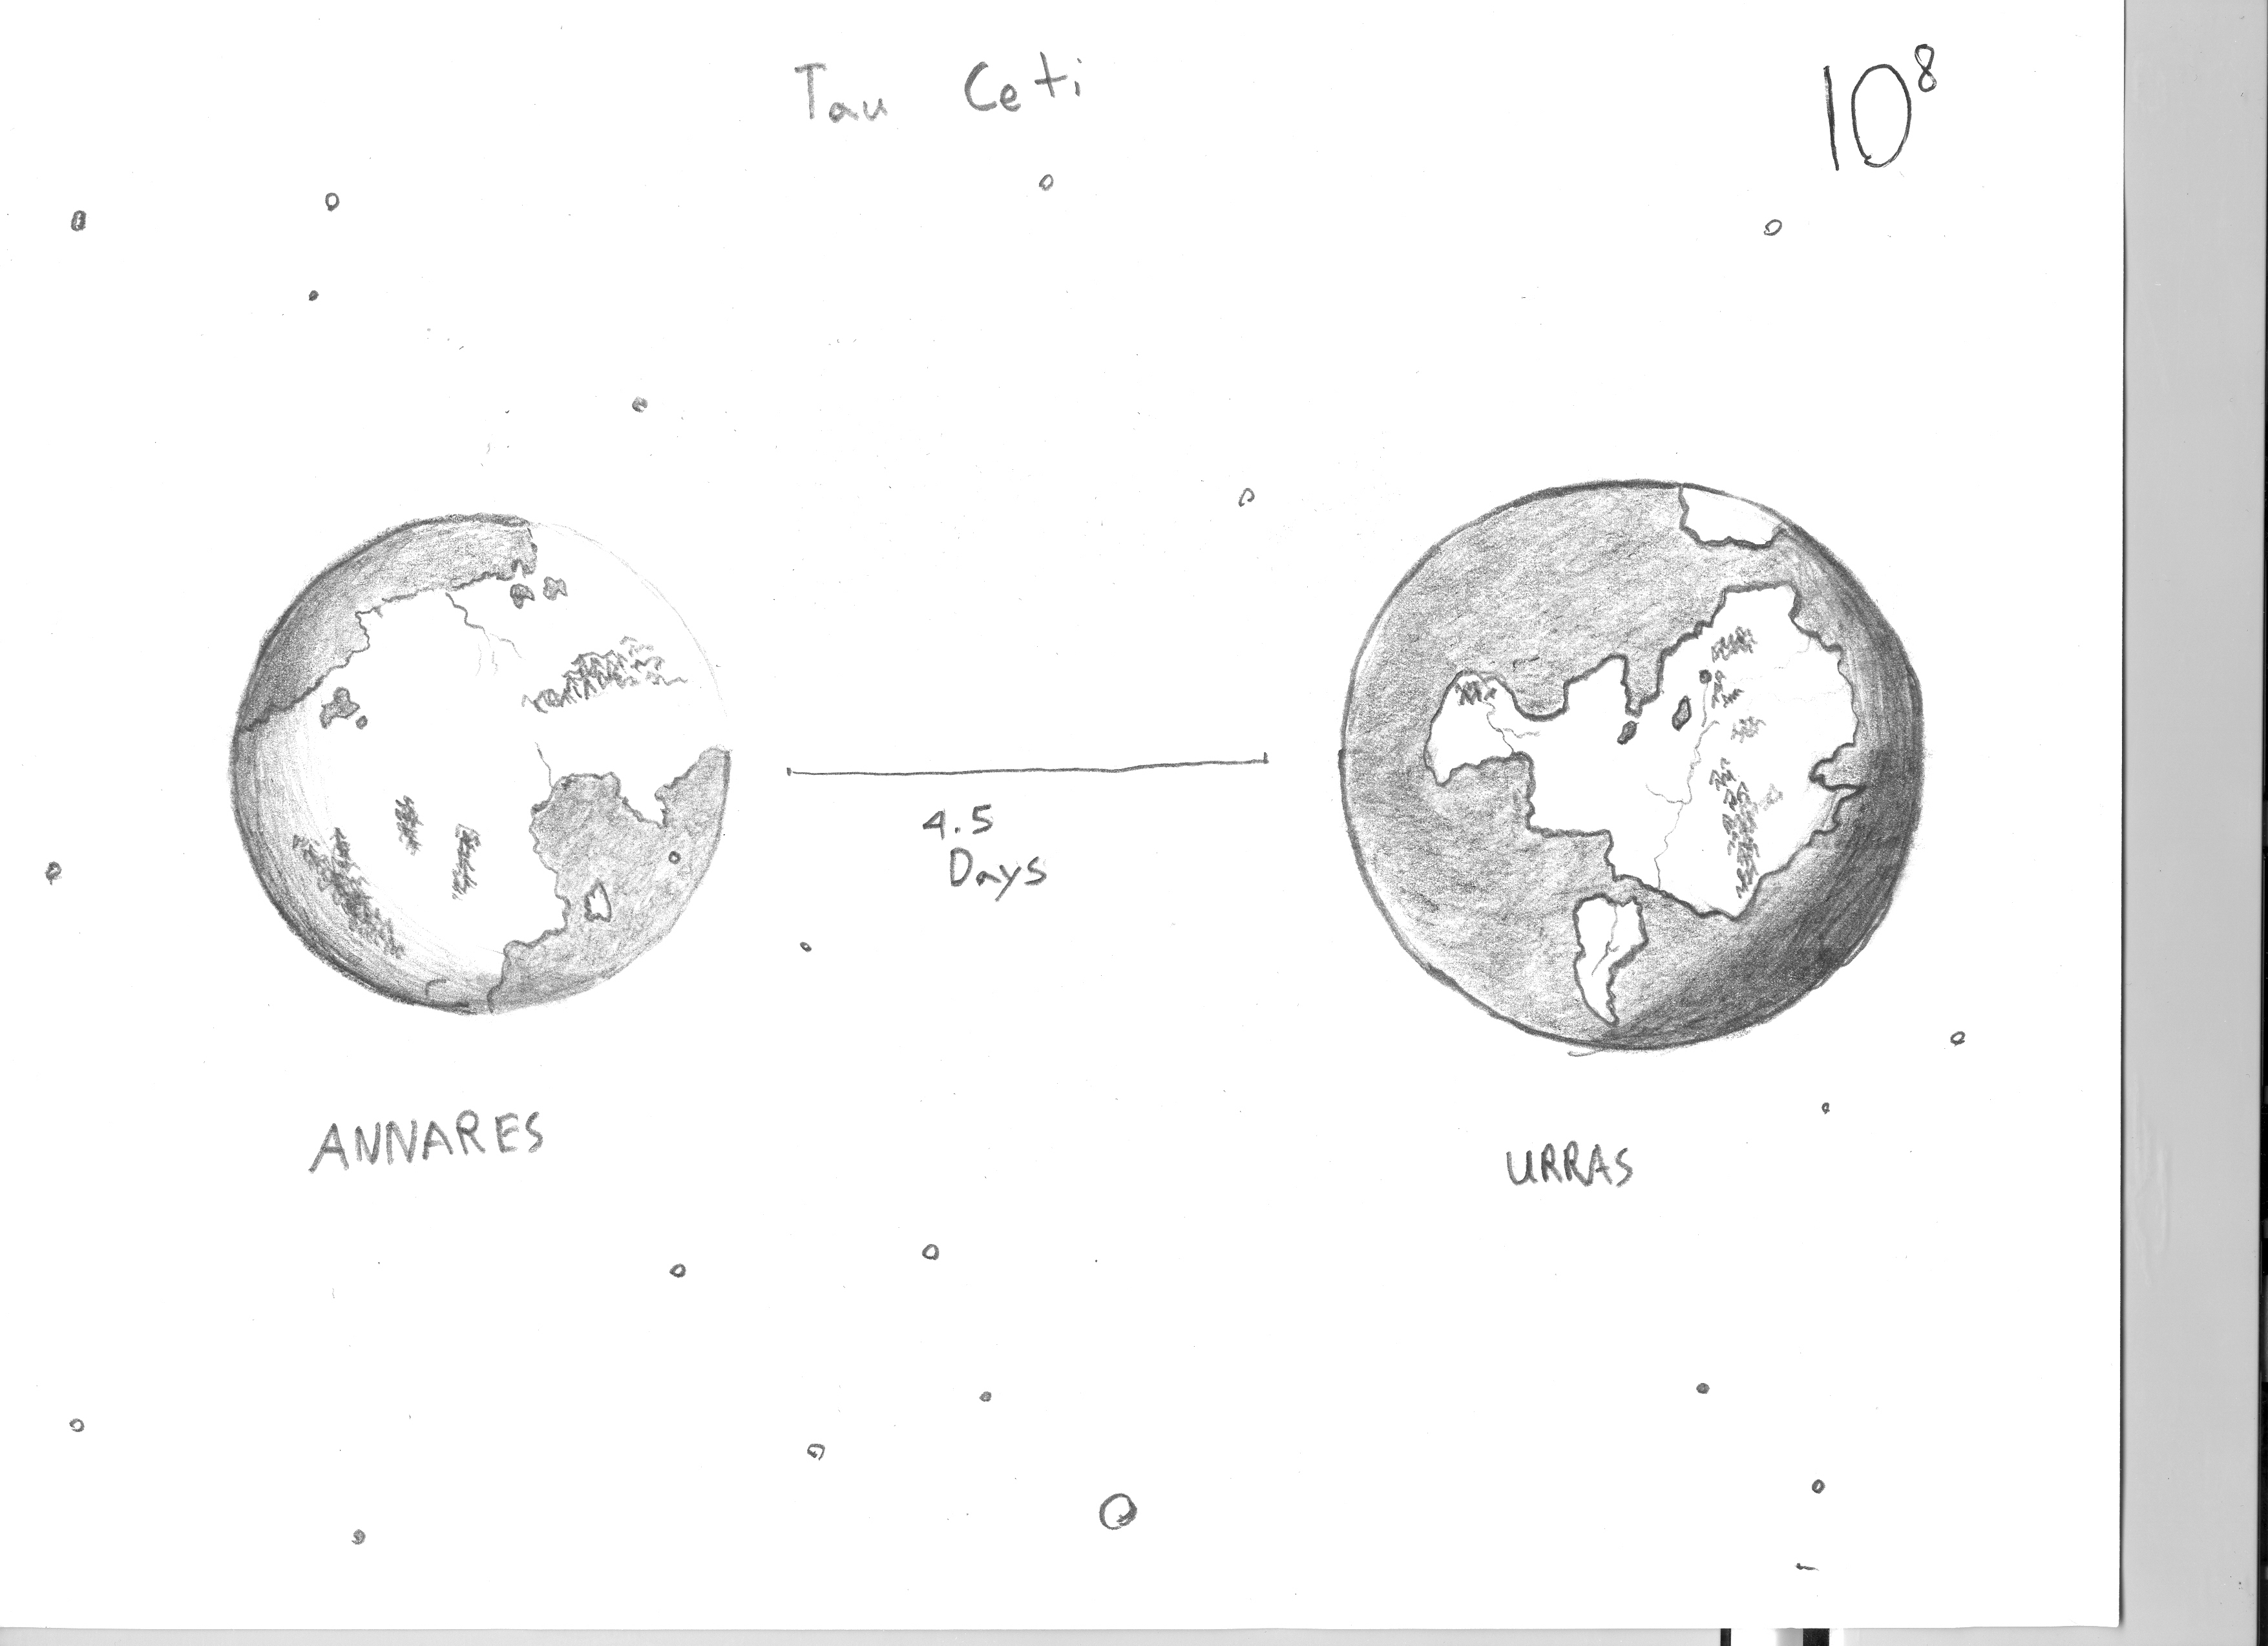 Tau Ceti
10⁸
4.5
Days
ANNARES
URRAS